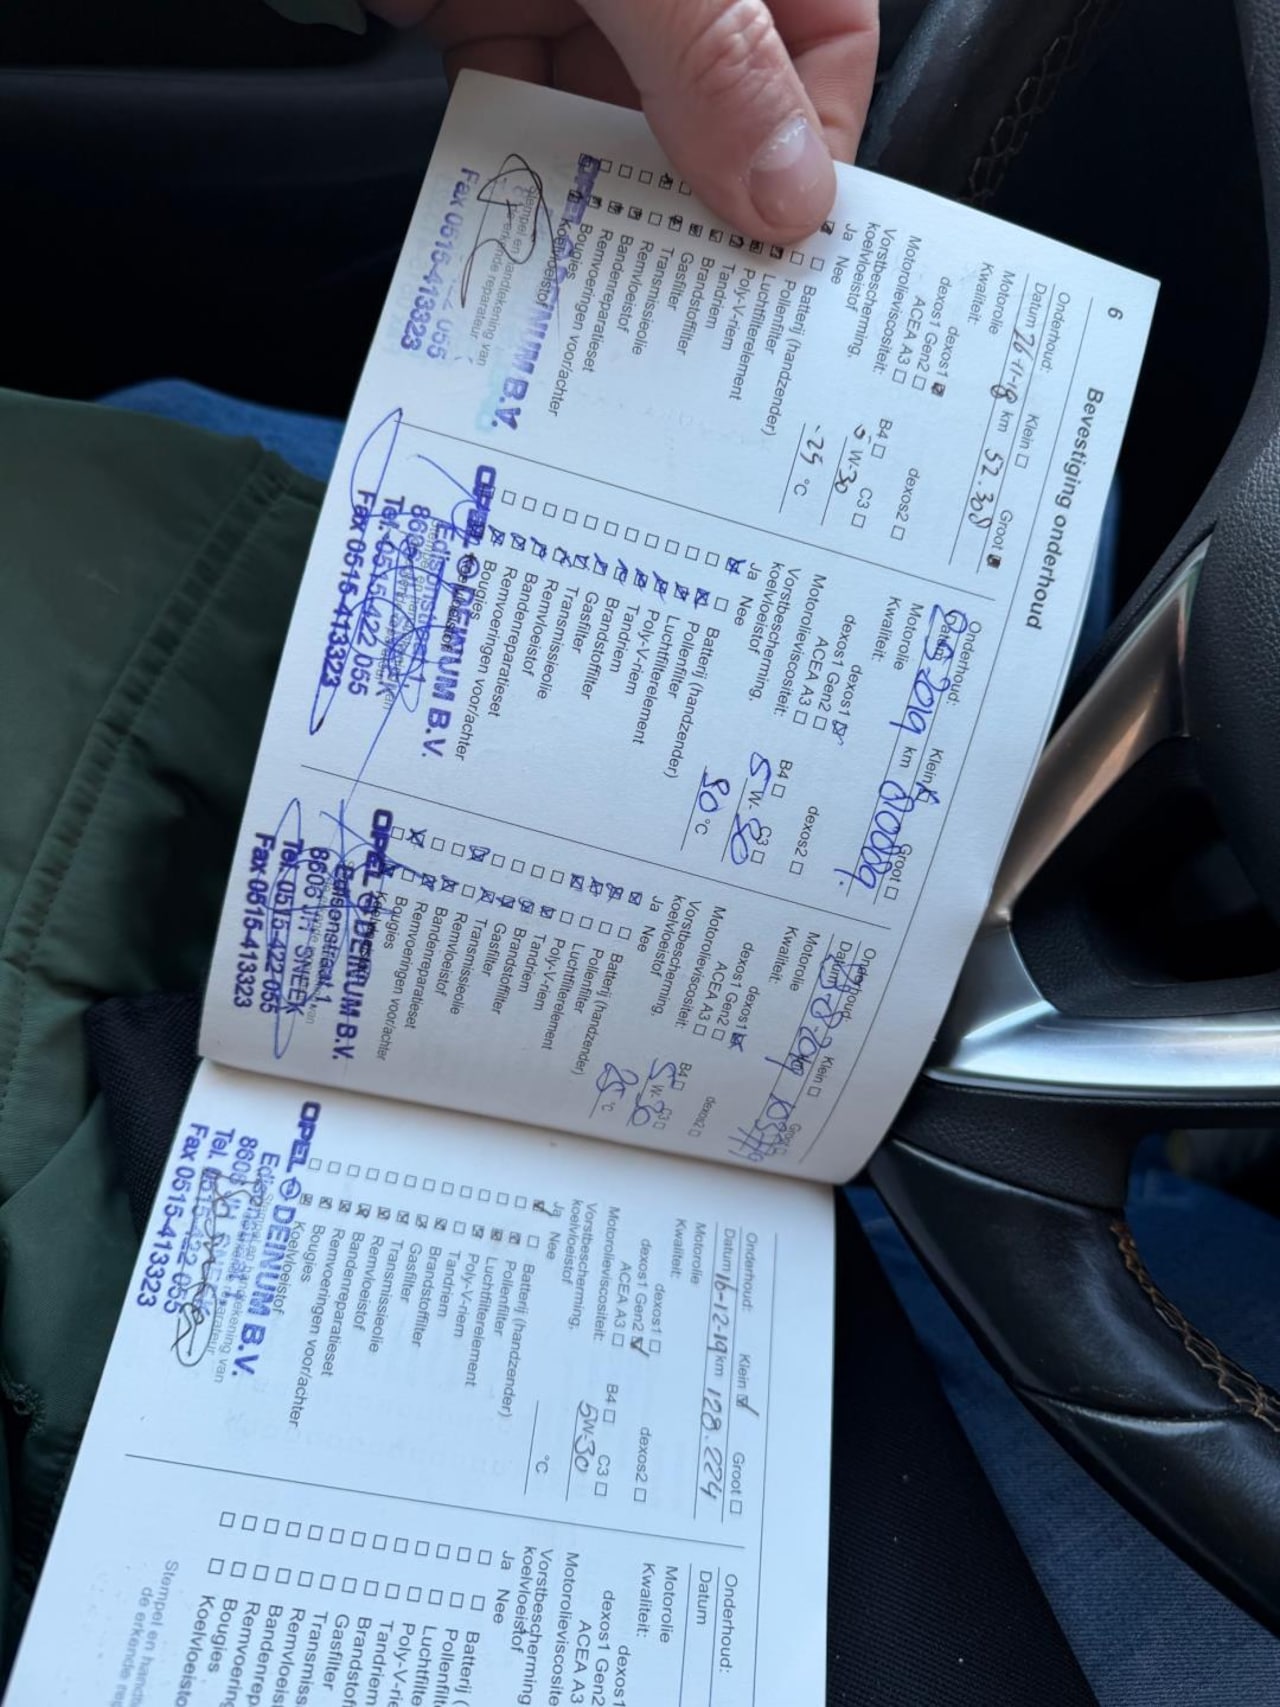 6
Bevestiging onderhoud
Onderhoud: Klein Groot
Datum 26-11-18 km 52.308
Motorolie
Kwaliteit:
dexos1 dexos2
dexos1 Gen2 B4 C3
ACEA A3
Motorolieviscositeit: 5 W-30
Vorstbescherming,
koelvloeistof -25 °C
Ja Nee
Batterij (handzender)
Pollenfilter
Luchtfilterelement
Poly-V-riem
Tandriem
Brandstoffilter
Gasfilter
Transmissieolie
Remvloeistof
Bandenreparatieset
Remvoeringen voor/achter
Bougies
Koelvloeistof
DEINUM B.V.
Fax 0515-413323
Onderhoud: Klein Groot
2019 km
Motorolie
Kwaliteit:
dexos1 dexos2
dexos1 Gen2
ACEA A3 B4 C3
Motorolieviscositeit: 5 W-
Vorstbescherming,
koelvloeistof °C
Ja Nee
Batterij (handzender)
Pollenfilter
Luchtfilterelement
Poly-V-riem
Tandriem
Brandstoffilter
Gasfilter
Transmissieolie
Remvloeistof
Bandenreparatieset
Remvoeringen voor/achter
Bougies
OPEL DEINUM B.V.
Tel. 0515-422 055
Fax 0515-413323
Onderhoud: Klein
Datum
Motorolie
Kwaliteit:
dexos1 dexos2
dexos1 Gen2
ACEA A3 B4 C3
Motorolieviscositeit: 5 W-30
Vorstbescherming,
koelvloeistof 25 °C
Ja Nee
Batterij (handzender)
Pollenfilter
Luchtfilterelement
Poly-V-riem
Tandriem
Brandstoffilter
Gasfilter
Transmissieolie
Remvloeistof
Bandenreparatieset
Remvoeringen voor/achter
Bougies
OPEL DEINUM B.V.
Edisonstraat 1
8606 JH SNEEK
Tel. 0515-422 055
Fax 0515-413323
Onderhoud: Klein Groot
Datum 16-12-19 km 128.224
Motorolie
Kwaliteit:
dexos1 dexos2
dexos1 Gen2
ACEA A3 B4 C3
Motorolieviscositeit: 5W-30
Vorstbescherming,
koelvloeistof °C
Ja Nee
Batterij (handzender)
Pollenfilter
Luchtfilterelement
Poly-V-riem
Tandriem
Brandstoffilter
Gasfilter
Transmissieolie
Remvloeistof
Bandenreparatieset
Remvoeringen voor/achter
Bougies
Koelvloeistof
OPEL DEINUM B.V.
Fax 0515-413323
Onderhoud:
Datum
Motorolie
Kwaliteit:
dexos1
dexos1 Gen2
ACEA A3
Motorolieviscosite
Vorstbescherming
koelvloeistof
Ja Nee
Batterij (
Pollenfilt
Luchtfilte
Poly-V-rie
Tandriem
Brandstof
Gasfilter
Transmiss
Remvloeis
Bandenrep
Remvoering
Bougies
Koelvloeisto
Stempel en hand
de erkende rep